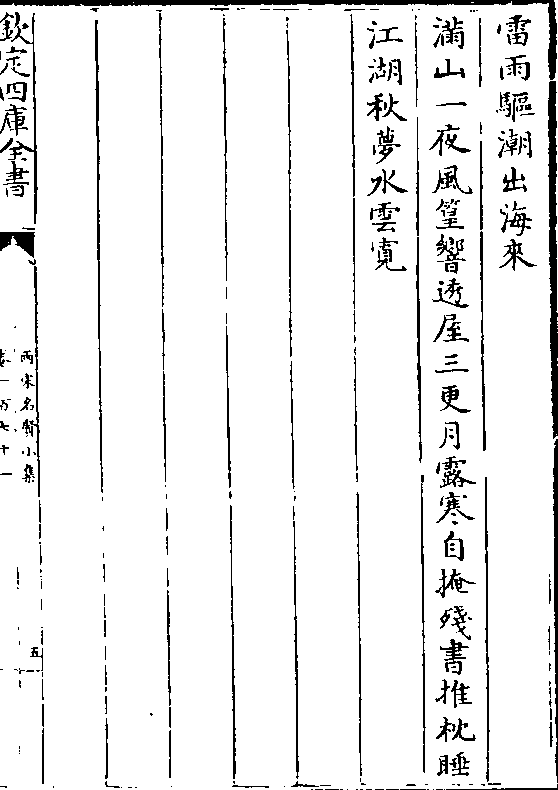 雷雨驅潮出海來
滿山一夜風篁響透屋三更月露寒自掩殘書推枕睡
江湖秋夢水雲寛
欽定四庫全書
兩宋名賢小集
卷一百七十一
五